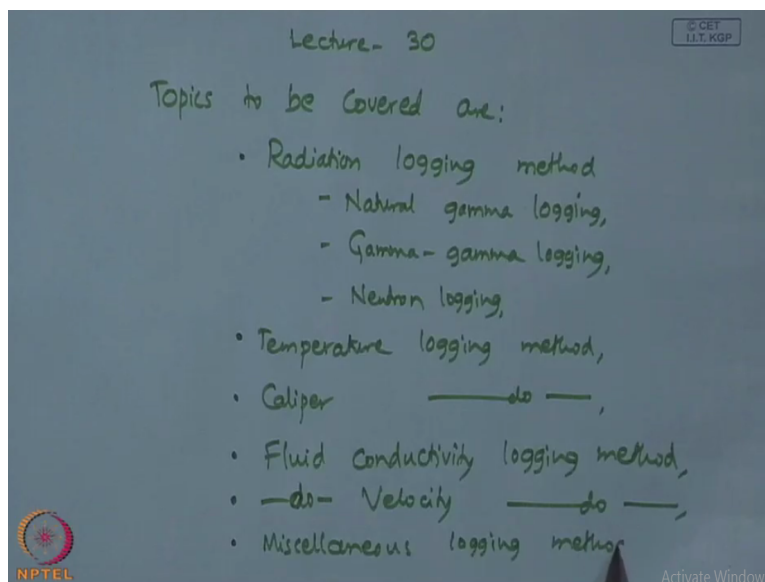 Lecture - 30
© CET
I.I.T. KGP
Topics to be Covered are:
• Radiation logging method
- Natural gamma logging,
- Gamma - gamma logging,
- Neutron logging,
• Temperature logging method,
• Caliper ——do——,
• Fluid conductivity logging method,
• —do— Velocity ——do——,
• Miscellaneous logging metho
NPTEL
Activate Window